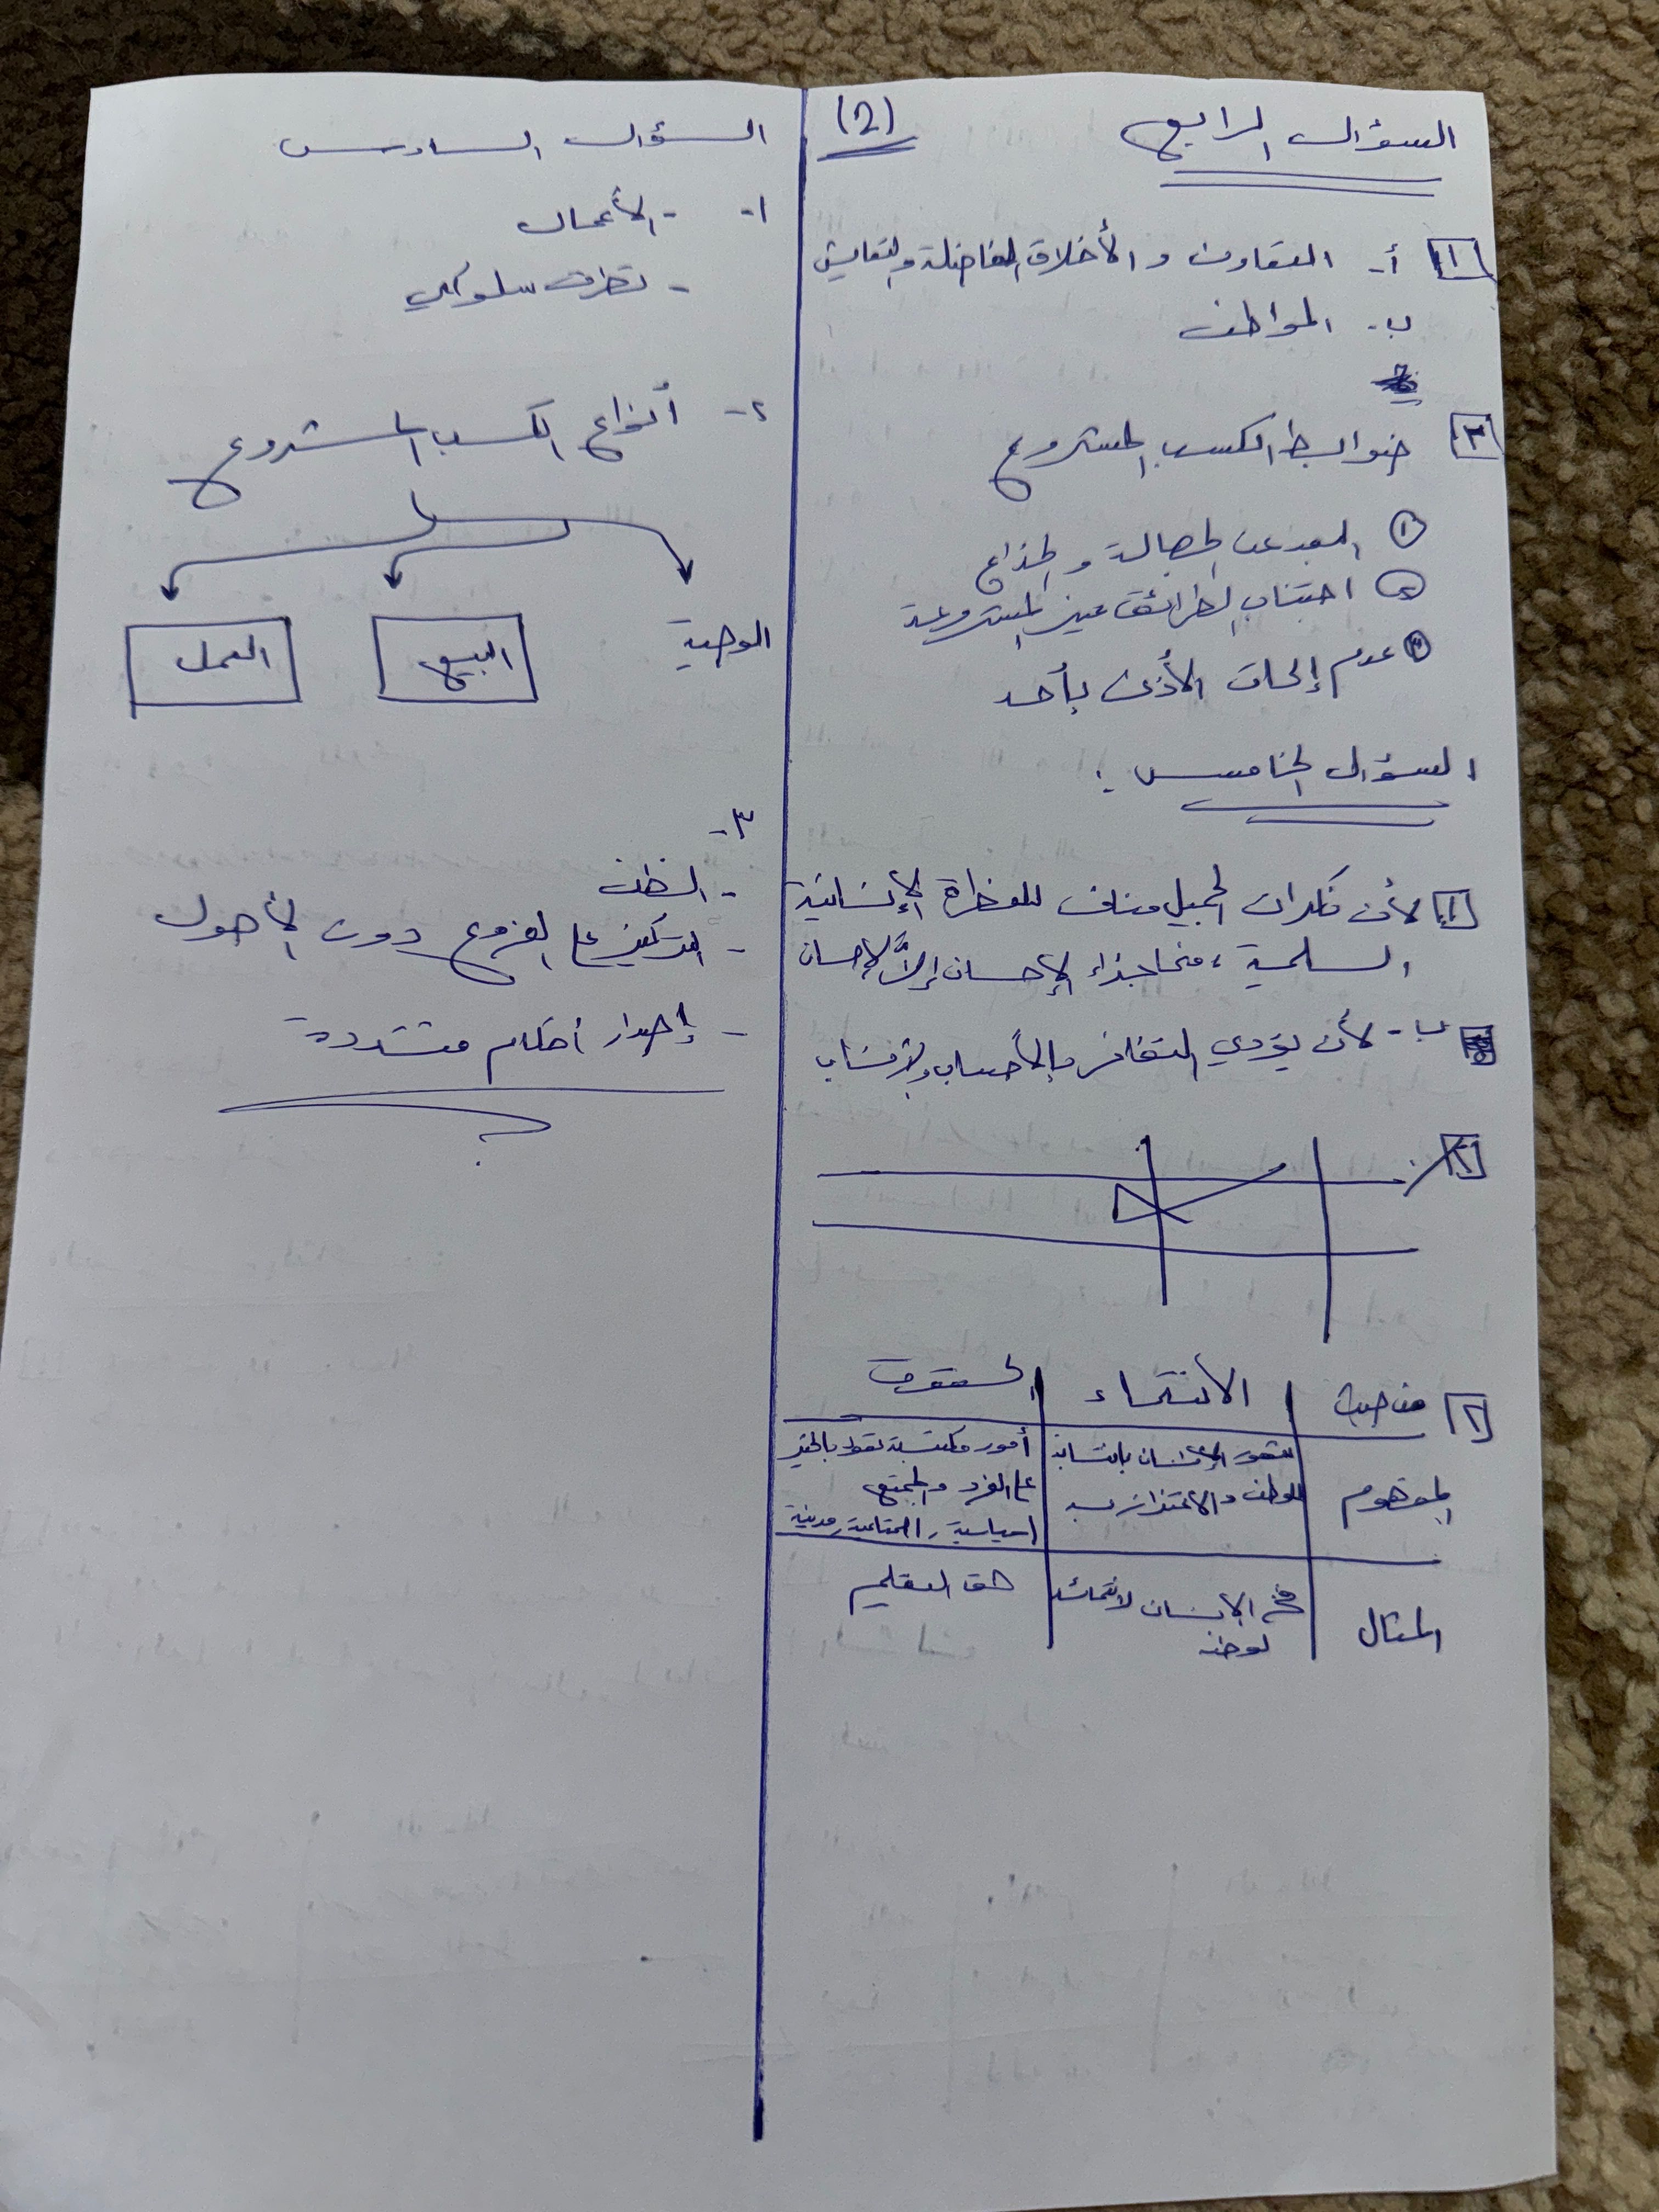 (2)
السؤال الرابع
[1] أ- التعاون والأخلاق الفاضلة والتعايش
ب- المواطن
[٢] ضوابط الكسب المشروع
① البعد عن الجهالة والخداع
② اجتناب الطرائق غير المشروعة
③ عدم إلحاق الأذى بأحد
السؤال الخامس:
[1] لأن نكران الجميل مناف للفطرة الإنسانية
السليمة، فما جزاء الإحسان إلا الإحسان
ب- لأن يؤدي التفاخر بالأحساب والأنساب
[٢] من حيث الانتماء الحقوق
المفهوم شعور الإنسان بانتسابه للوطن والاعتزاز به أمور مكتسبة تعود بالخير
على الفرد والمجتمع
(سياسية، اجتماعية، مدنية
المثال فخر الإنسان لانتمائه لوطنه حق التعليم
السؤال السادس
١- - الأعمال
- تطرف سلوكي
٢- أنواع الكسب المشروع
الوصية البيع العمل
٣-
- الظن
- التركيز على الفروع دون الأصول
- إصدار أحكام متشددة